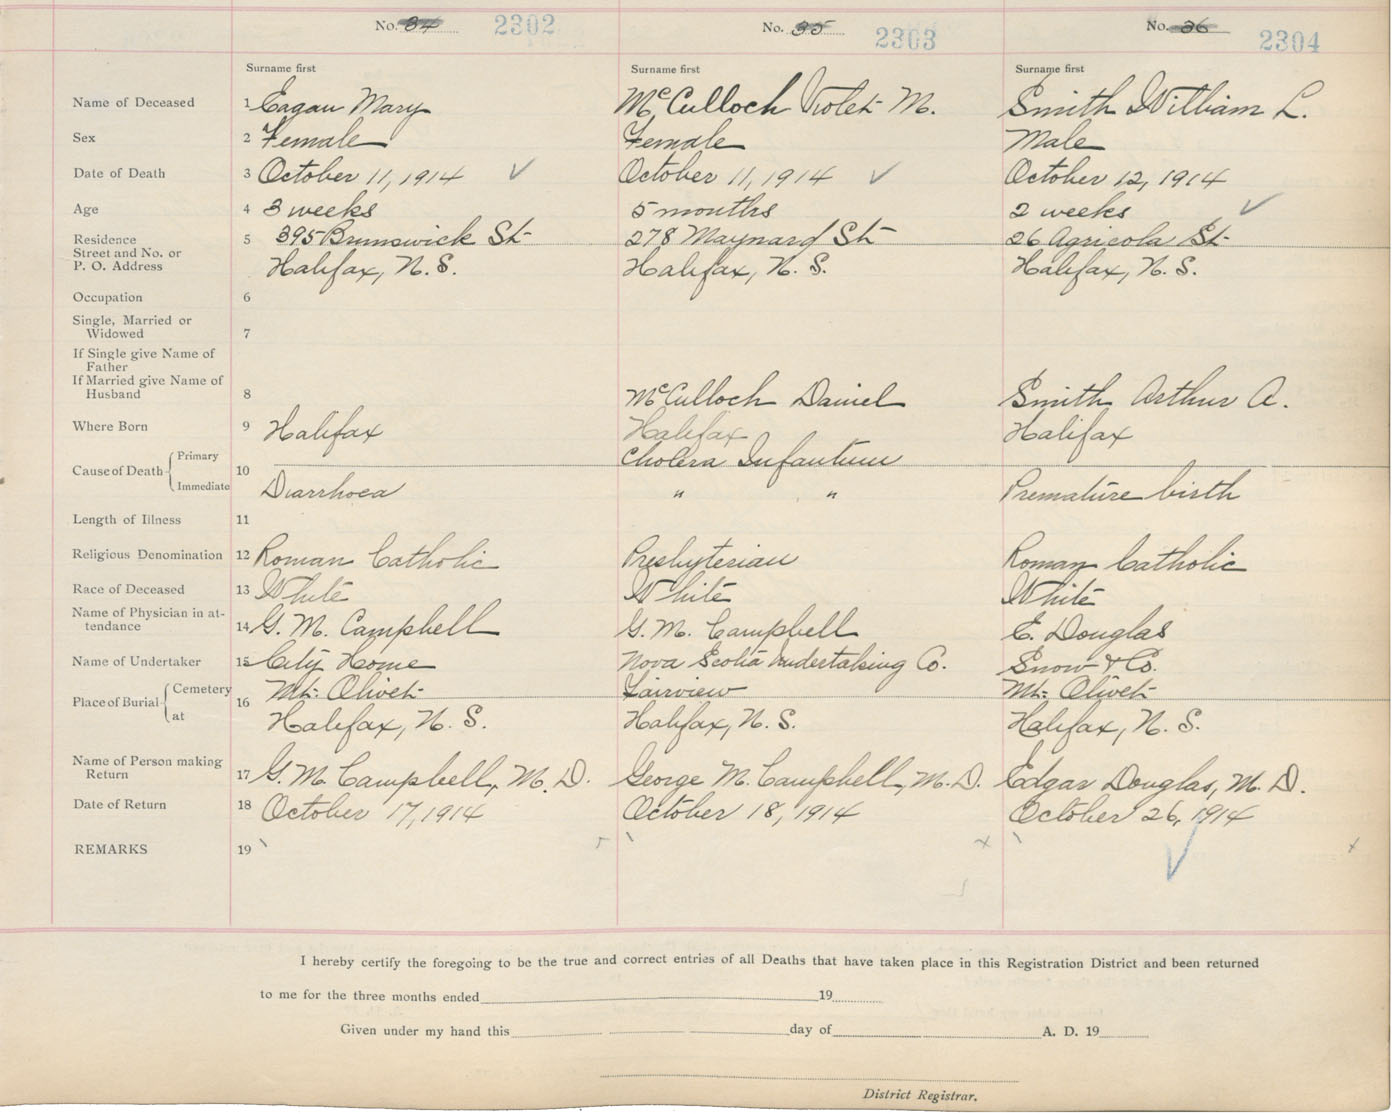 No. 34 2302 No. 35 2303 No. 36 2304
Surname first Surname first Surname first
Name of Deceased 1 Eagan Mary McCulloch Violet M. Smith William L.
Sex 2 Female Female Male
Date of Death 3 October 11, 1914 ✓ October 11, 1914 ✓ October 12, 1914
Age 4 3 weeks 5 months 2 weeks ✓
Residence 5 395 Brunswick St 278 Maynard St 26 Agricola St
Street and No. or
P. O. Address Halifax, N. S. Halifax, N. S. Halifax, N. S.
Occupation 6
Single, Married or
Widowed 7
If Single give Name of
Father
If Married give Name of
Husband 8 McCulloch Daniel Smith Arthur A.
Where Born 9 Halifax Halifax Halifax
Cause of Death Primary 10 Cholera Infantum
Immediate Diarrhoea " " Premature birth
Length of Illness 11
Religious Denomination 12 Roman Catholic Presbyterian Roman Catholic
Race of Deceased 13 White White White
Name of Physician in at-
tendance 14 G. M. Campbell G. M. Campbell E. Douglas
Name of Undertaker 15 City Home Nova Scotia Undertaking Co. Snow & Co.
Place of Burial Cemetery 16 Mt. Olivet Fairview Mt. Olivet
at Halifax, N. S. Halifax, N. S. Halifax, N. S.
Name of Person making
Return 17 G. M. Campbell, M. D. George M. Campbell, M. D. Edgar Douglas, M. D.
Date of Return 18 October 17, 1914 October 18, 1914 October 26, 1914
REMARKS 19
I hereby certify the foregoing to be the true and correct entries of all Deaths that have taken place in this Registration District and been returned
to me for the three months ended 19
Given under my hand this day of A. D. 19
District Registrar.